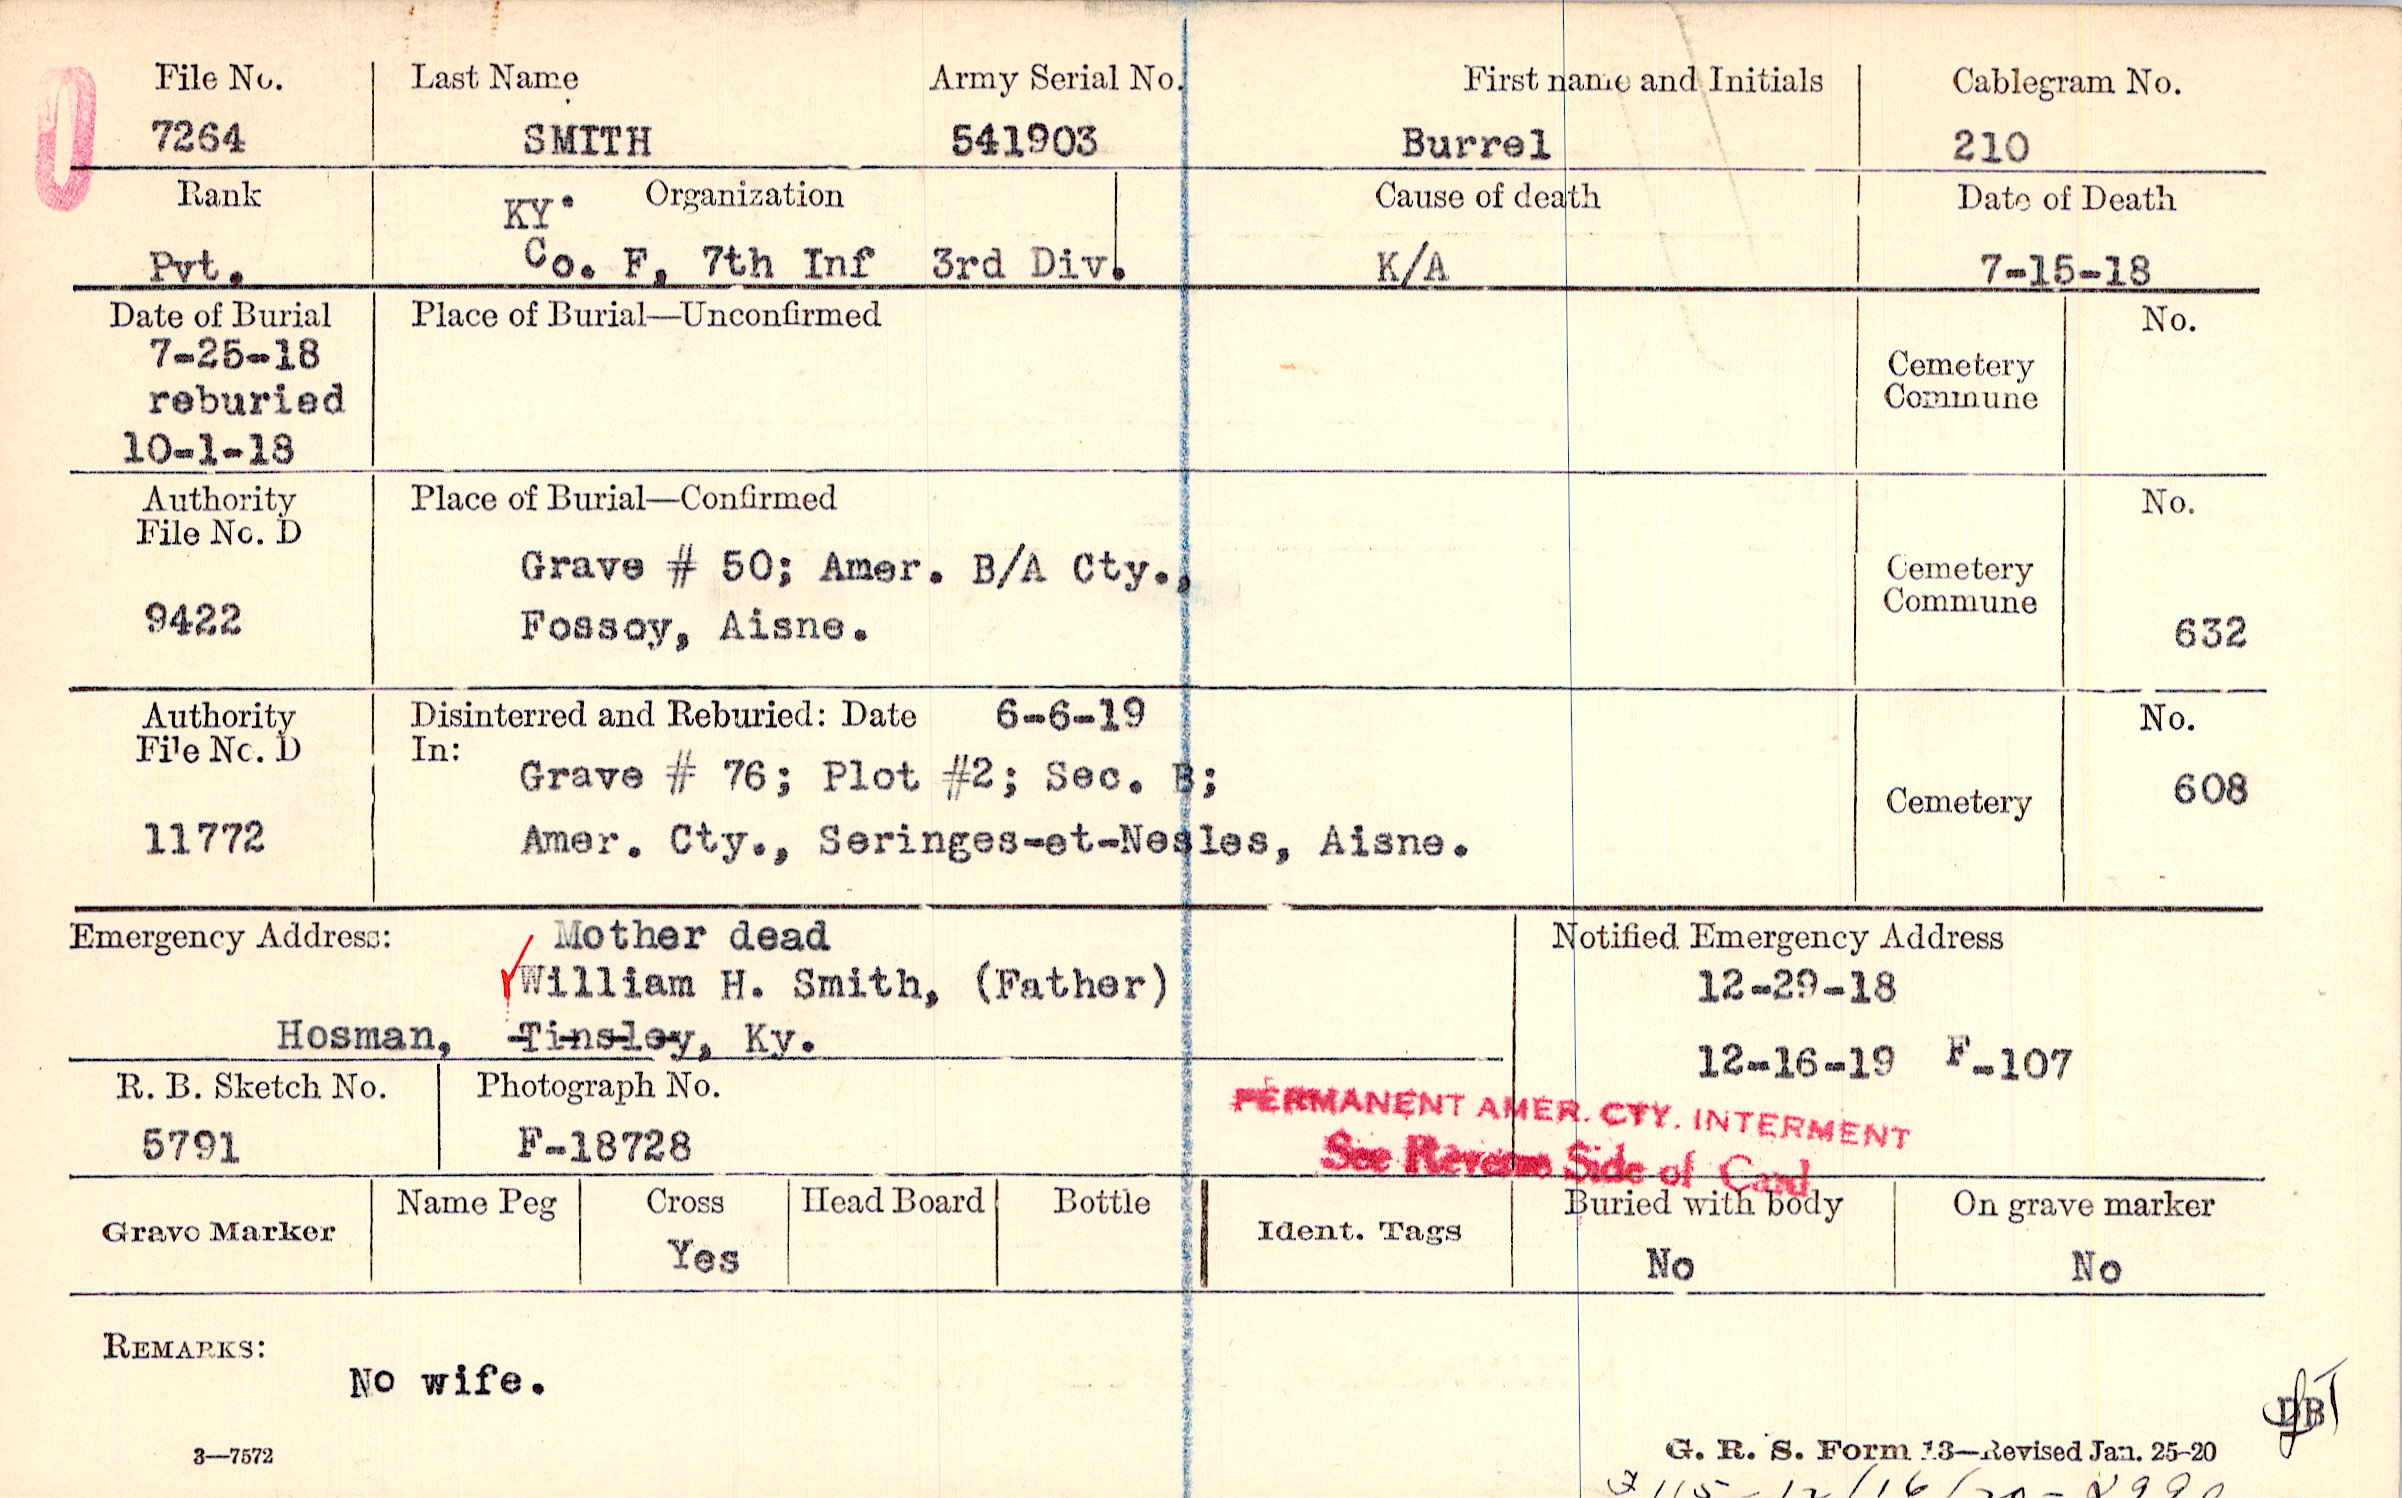 File No. Last Name Army Serial No. First name and Initials Cablegram No.
7264 SMITH 541903 Burrel 210
Rank KY. Organization Cause of death Date of Death
Pvt. Co. F, 7th Inf 3rd Div. K/A 7-15-18
Date of Burial Place of Burial—Unconfirmed No.
7-25-18
reburied
10-1-18
Cemetery
Commune
Authority Place of Burial—Confirmed No.
File No. D
Grave # 50; Amer. B/A Cty.,
9422 Fossoy, Aisne.
Cemetery
Commune
632
Authority Disinterred and Reburied: Date 6-6-19 No.
File No. D In:
Grave # 76; Plot #2; Sec. B;
Cemetery 608
11772 Amer. Cty., Seringes-et-Nesles, Aisne.
Emergency Address: Mother dead
William H. Smith, (Father)
Hosman, Tinsley, Ky.
Notified Emergency Address
12-29-18
12-16-19 F-107
R. B. Sketch No. Photograph No.
5791 F-18728
PERMANENT AMER. CTY. INTERMENT
See Reverse Side of Card
Grave Marker Name Peg Cross Head Board Bottle Ident. Tags Buried with body On grave marker
Yes No No
REMARKS:
No wife.
3—7572
G. R. S. Form 13—Revised Jan. 25-20